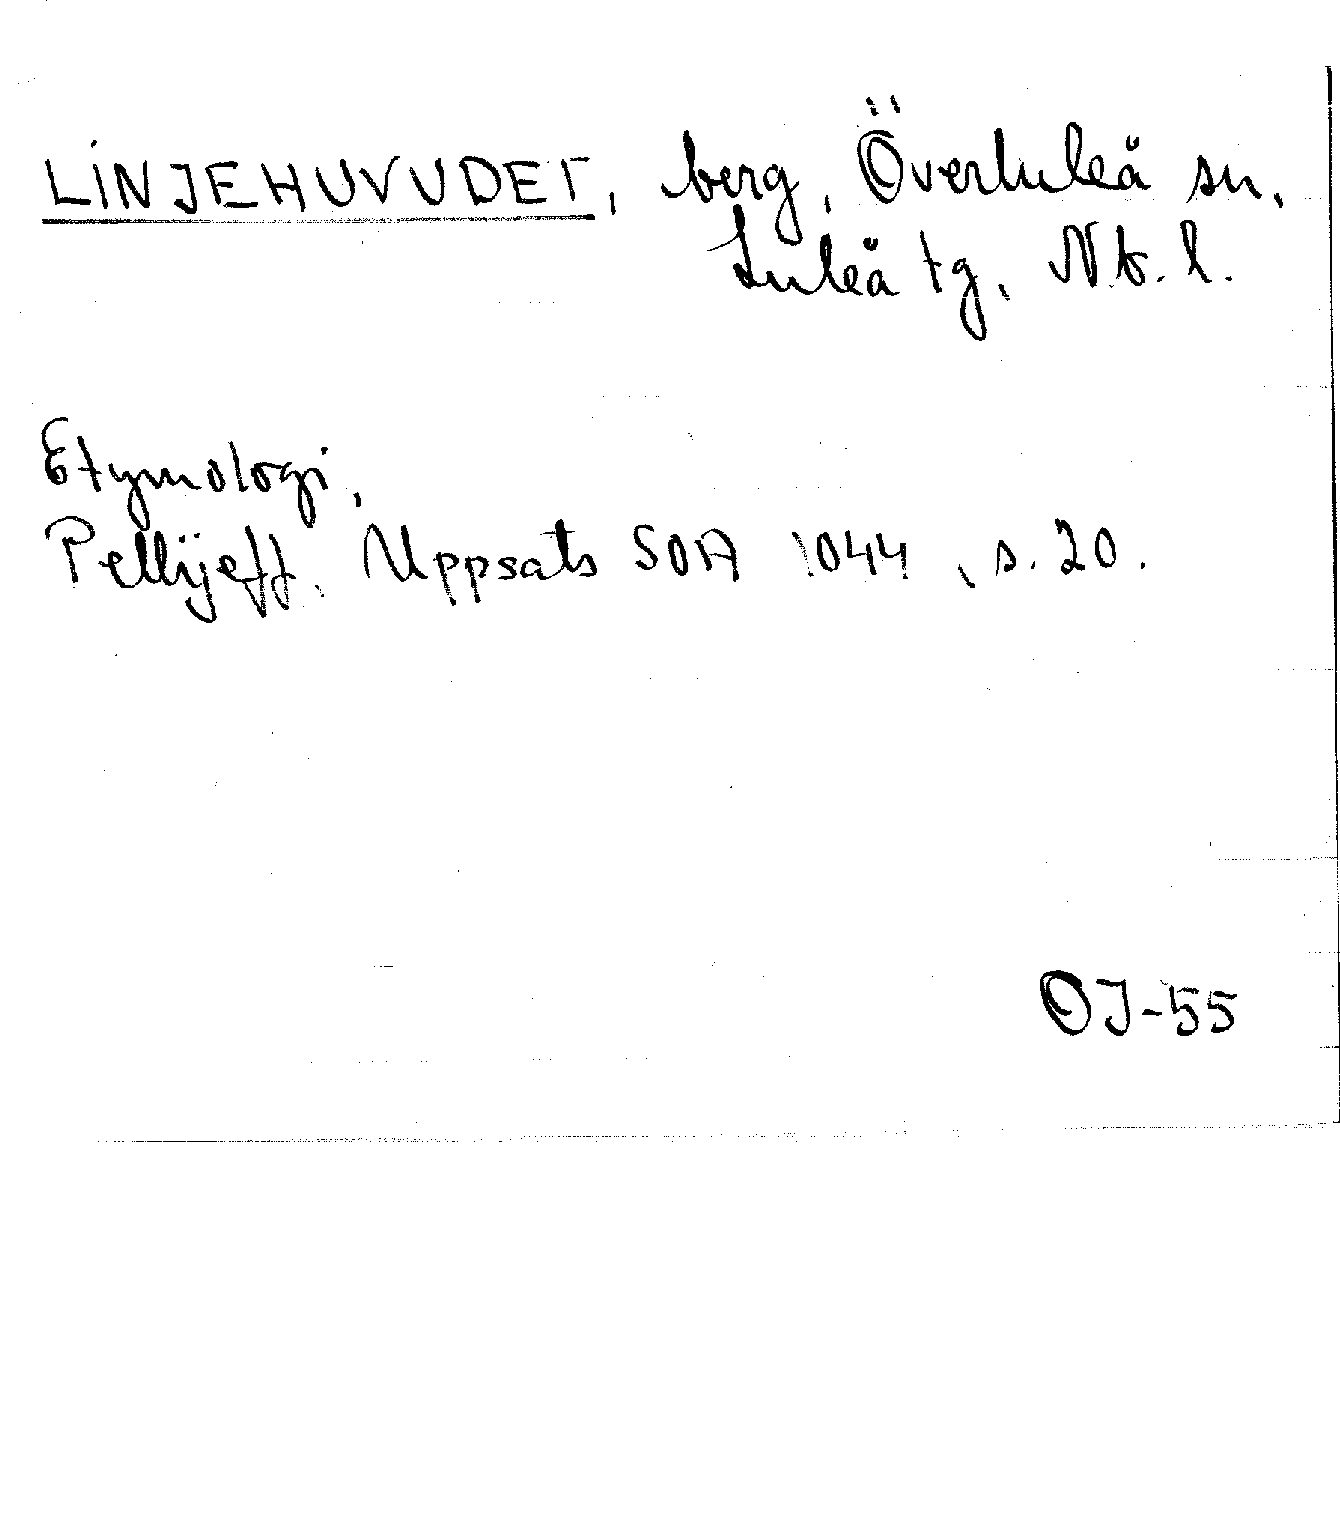 LINJEHUVUDET, berg, Överluleå sn,
Luleå tg, Nb. l.
Etymologi,
Pellijeff, Uppsats SOA 1044, s. 20.
OJ-55